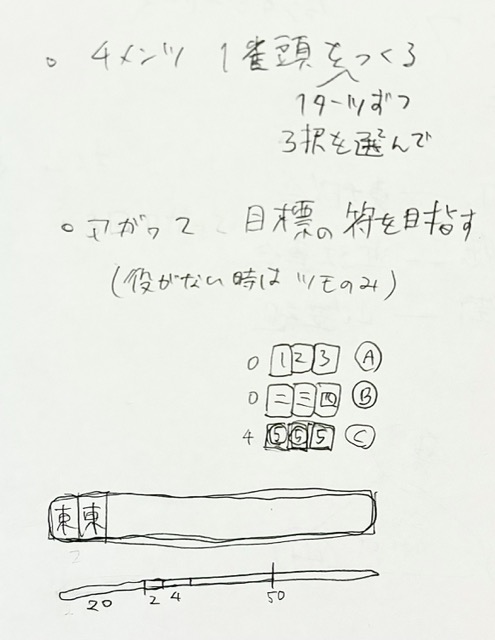 ○ 4メンツ 1雀頭をつくる
1ターツずつ
3択を選んで
○ アガって、目標の符を目指す
(役がない時は ツモのみ)
0 1 2 3 A
0 二 三 四 B
4 5 5 5 C
東 東
20 2 4 50